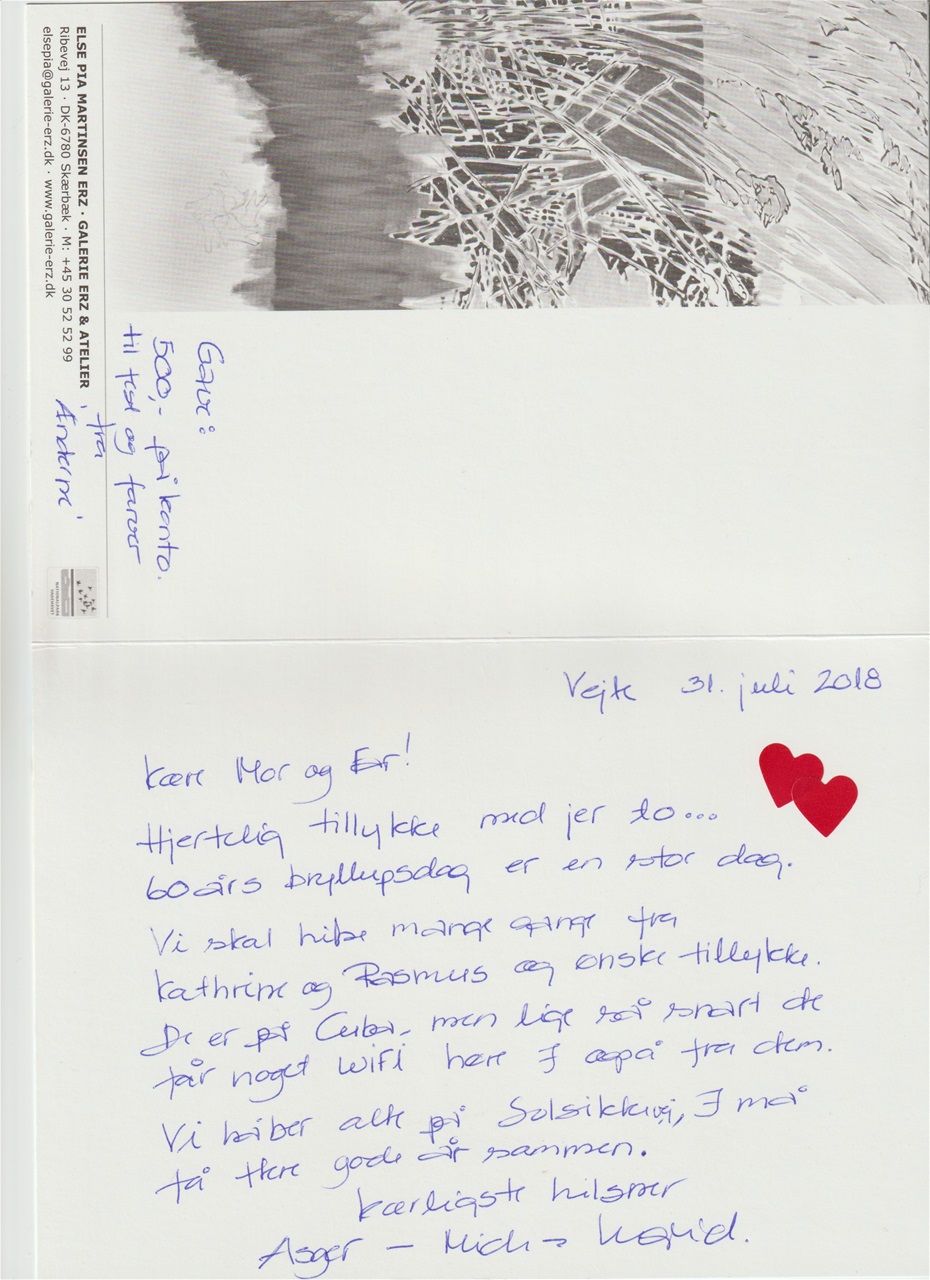 ELSE PIA MARTINSEN ERZ · GALERIE ERZ & ATELIER
Ribevej 13 · DK-6780 Skærbæk · M: +45 30 52 52 99
elsepia@galerie-erz.dk · www.galerie-erz.dk
Gave:
500,- på konto.
til test og farver
fra
'Ænderne'
Vejle 31. juli 2018
Kære Mor og Far!
Hjertelig tillykke med jer to...
60 års bryllupsdag er en stor dag.
Vi skal hilse mange gange fra
Kathrine og Rasmus og ønske tillykke.
De er på Cuba, men lige så snart de
får noget WiFi hører I også fra dem.
Vi håber alle på Solsikkevej, I må
få flere gode år sammen.
Kærligste hilsner
Asger –